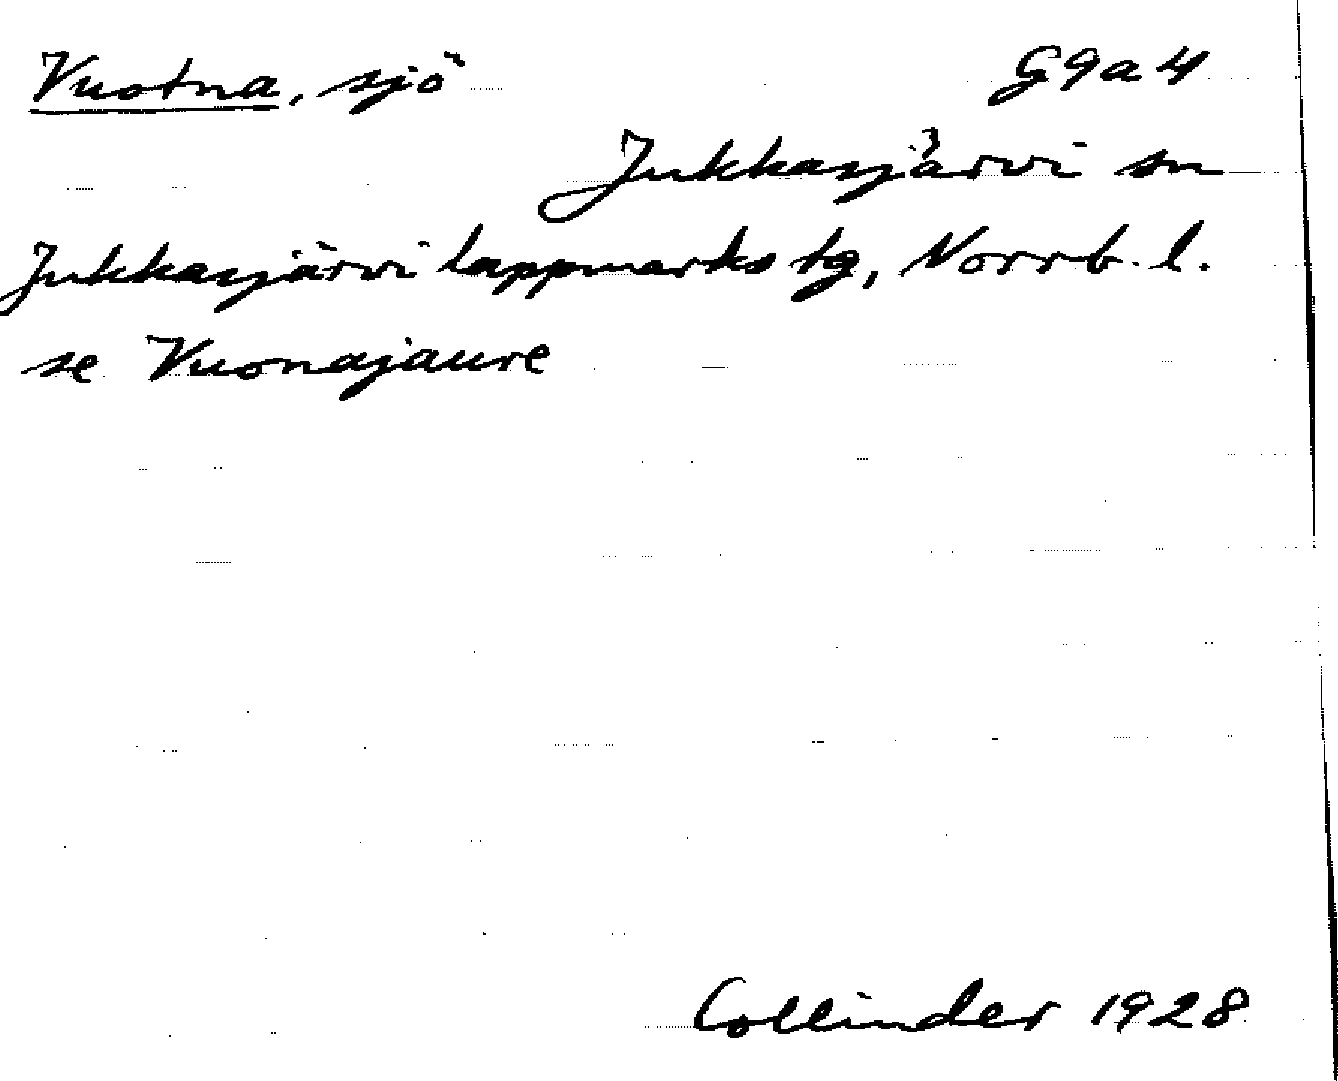 Vuotna, sjö G9a4
Jukkasjärvi sn
Jukkasjärvi lappmarks tg, Norrb. l.
se Vuonajaure
Collinder 1928